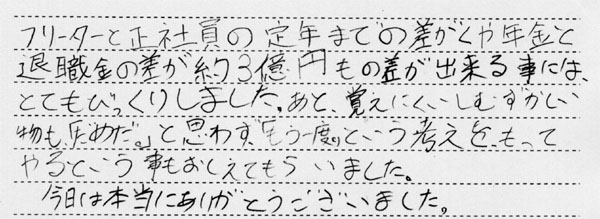 フリーターと正社員の定年までの差がくや年金と
退職金の差が約3億円もの差が出来る事には、
とてもびっくりしました。あと、覚えにくいしむずかしい
物も、「だめだ。」と思わず「もう一度。」という考えを、もって
やるという事もおしえてもらいました。
今日は本当にありがとうございました。